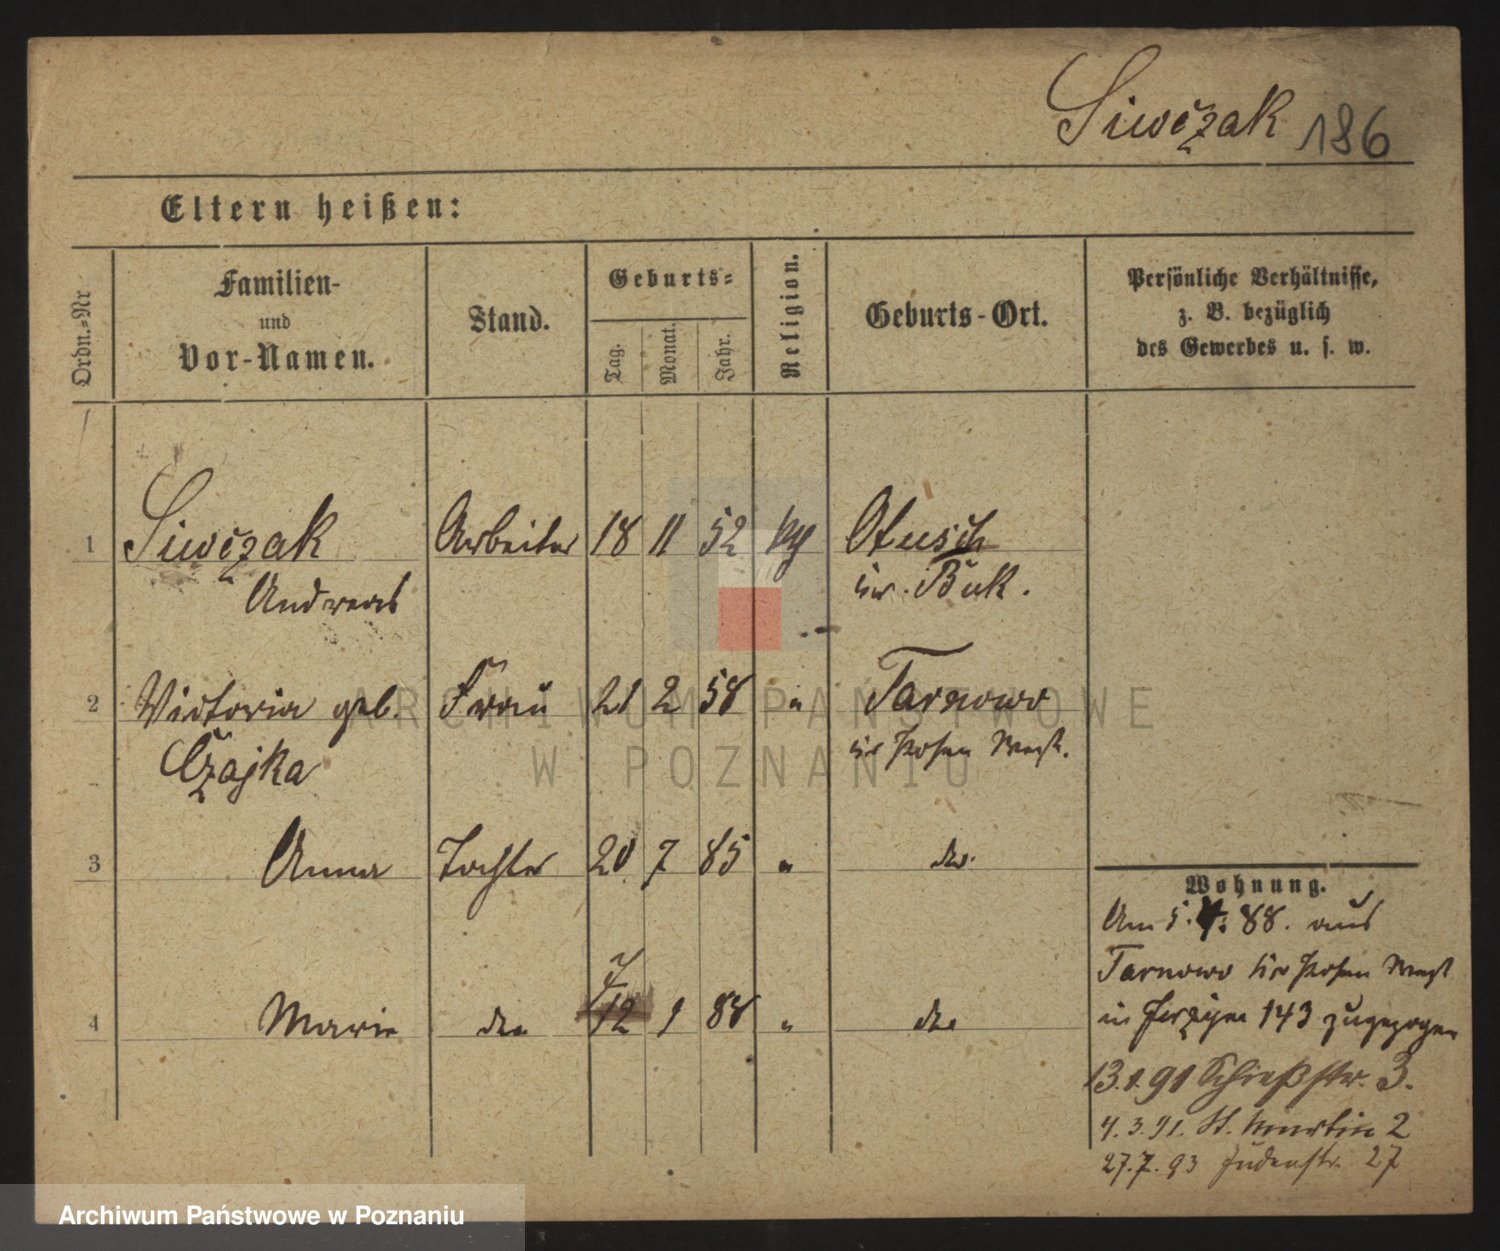 Siwczak 186
Eltern heißen:
Ordn.=Nr
Familien-
und
Vor-Namen.
Stand.
Geburts=
Tag.
Monat.
Jahr.
Religion.
Geburts-Ort.
Persönliche Verhältnisse,
z. B. bezüglich
des Gewerbes u. s. w.
1 Siwczak Arbeiter 18 11 52 Otusch
Andreas Buk.
2 Victoria geb. Frau 21 2 58 " Tarnowo
Czajka Posen West.
3 Anna Tochter 20 7 85 " do.
4 Marie do 12 1 88 " do
Wohnung.
Am 5. 4. 88. aus
Tarnowo Kr Posen West
in Jerzyce 143 zugezogen
13.1.91 Schießstr. 3.
4.3.91. St. Martin 2
27.7.93 Judenstr. 27
ARCHIWUM PAŃSTWOWE
W POZNANIU
Archiwum Państwowe w Poznaniu